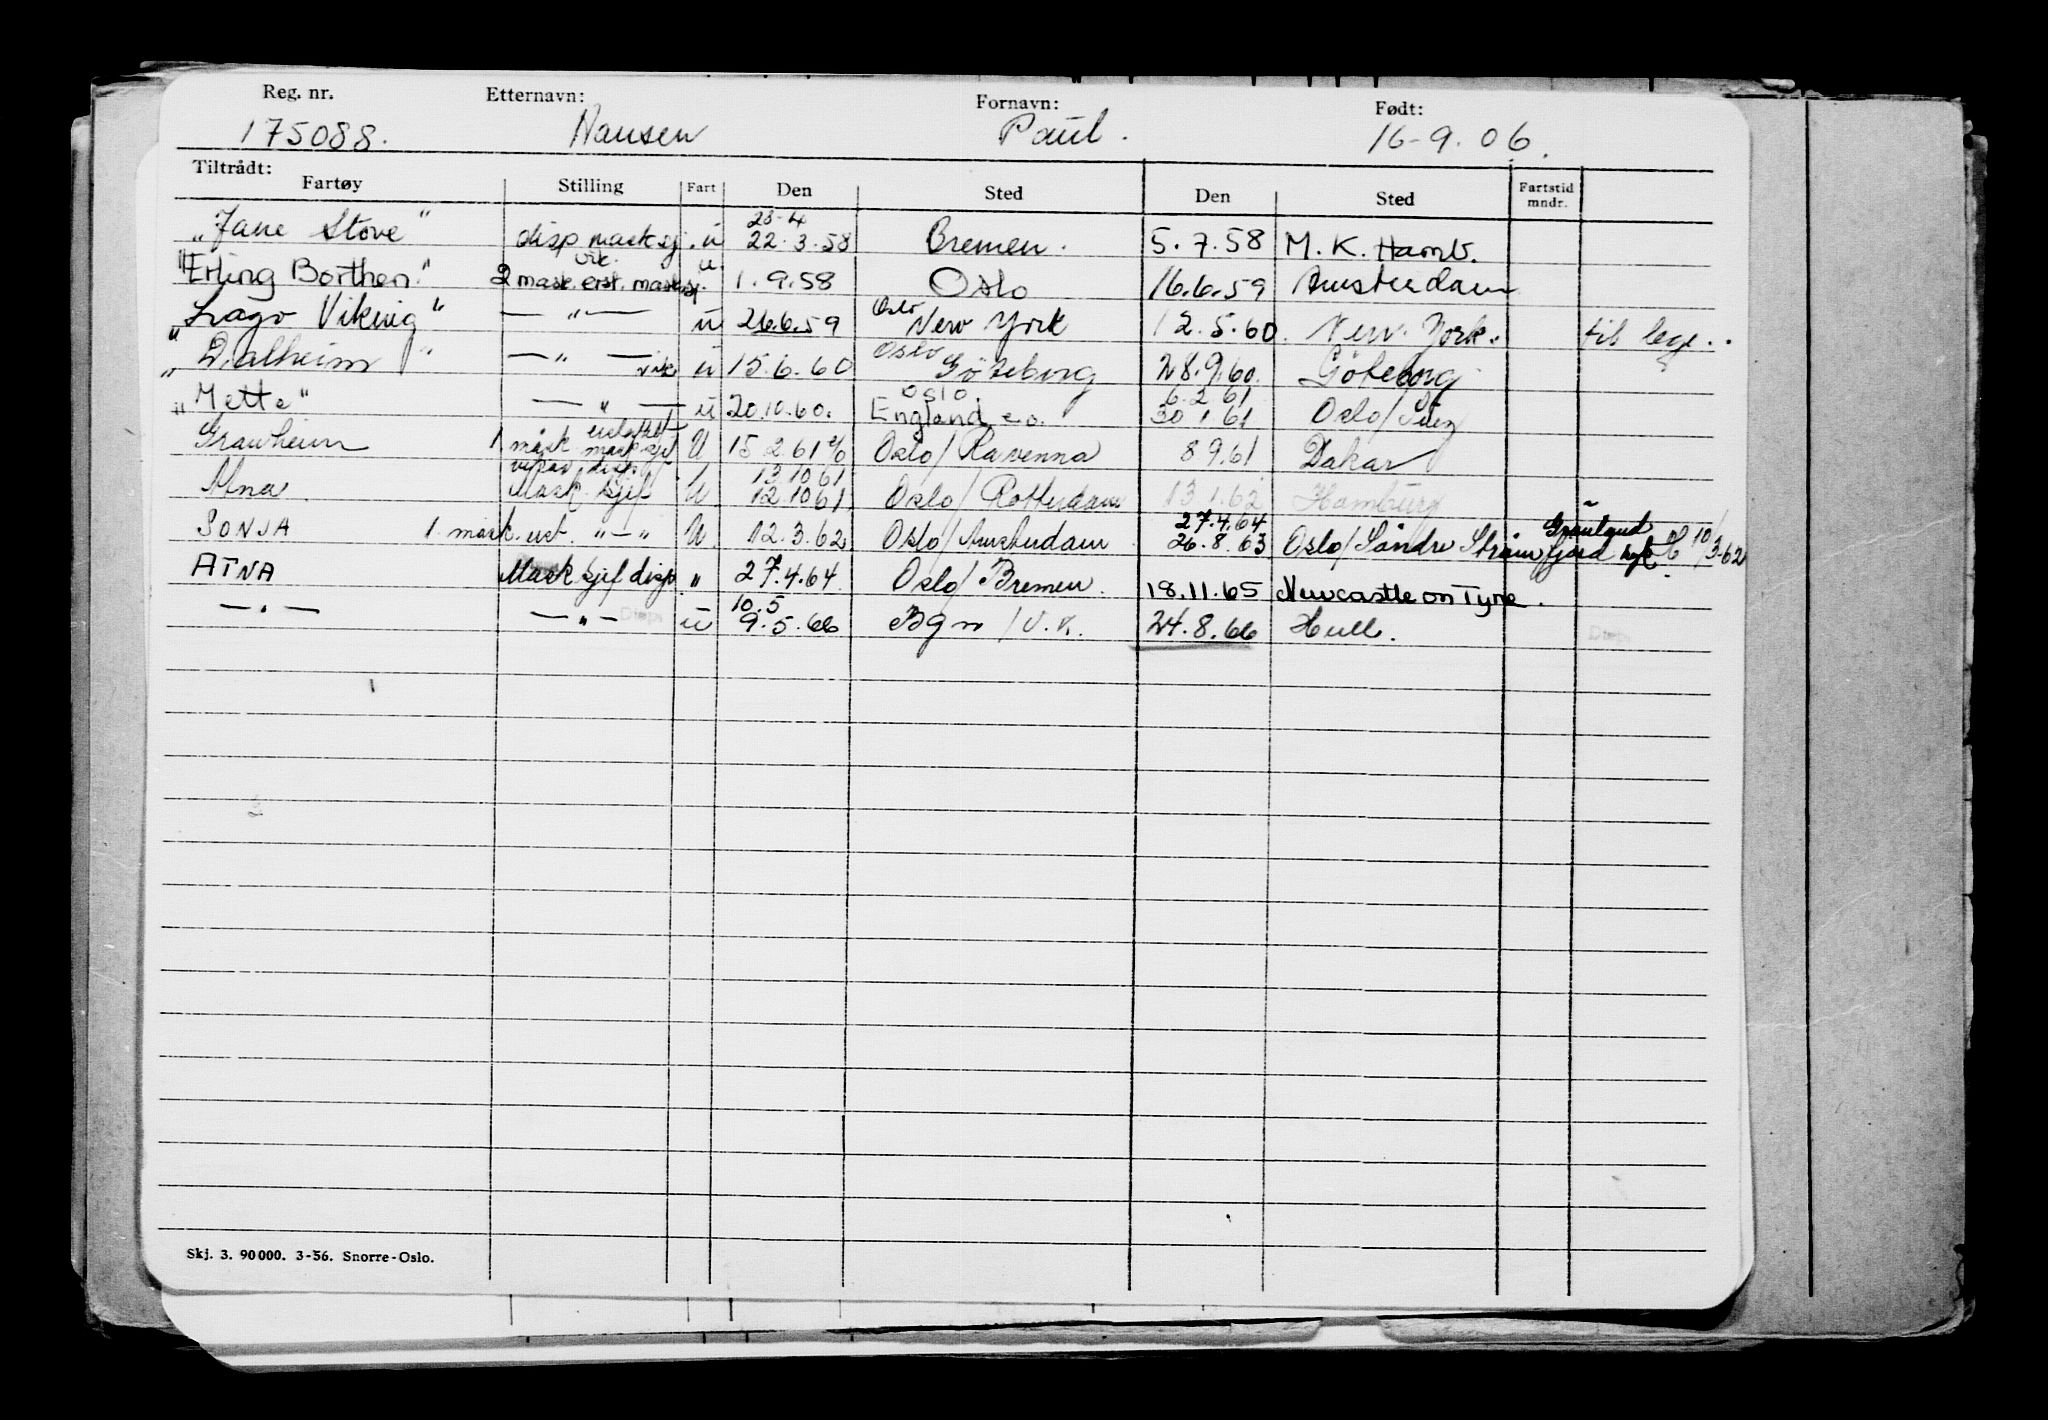 Reg. nr. Etternavn: Fornavn: Født:
175088. Nansen Paul. 16-9.06.
Tiltrådt:
Fartøy Stilling Fart Den Sted Den Sted Fartstid mndr.
23-4
"Jane Stove" disp mask sj. u 22.3.58 Bremen. 5.7.58 M.K. Hamb.
vik.
"Erling Borthen" 2 mask. erst. mask sj. u. 1.9.58 Oslo 16.6.59 Amsterdam
"Lago Viking" — " — u 26.6.59 Oslo New York 12.5.60 New York. til lege..
"Dalheim" — " — vik u 15.6.60 Oslo Göteborg 28.9.60. Göteborg
Oslo. 6.2.61
"Mette" — " — u 20.10.60. England e.o. 30.1.61 Oslo/Suez
Grauheim 1 mask mask sjef U 15.2.61 Oslo/Ravenna 8.9.61 Dakar
disp. 13.10.61
Atna. Mask. sjef U 12.10.61 Oslo/Rotterdam 13.1.62 Hamburg
27.4.64 Grønland
SONJA 1. mask. erst. "—" U. 12.3.62 Oslo/Amsterdam 26.8.63 Oslo/Søndre Strømfjord 10/3-62
ATNA Mask sjef disp " 27.4.64 Oslo/Bremen. 18.11.65 Newcastle on Tyne.
10.5
— " — — " — Disp. u 9.5.66 Bgn/U.K. 24.8.66 Hull.
Skj. 3. 90000. 3-56. Snorre-Oslo.